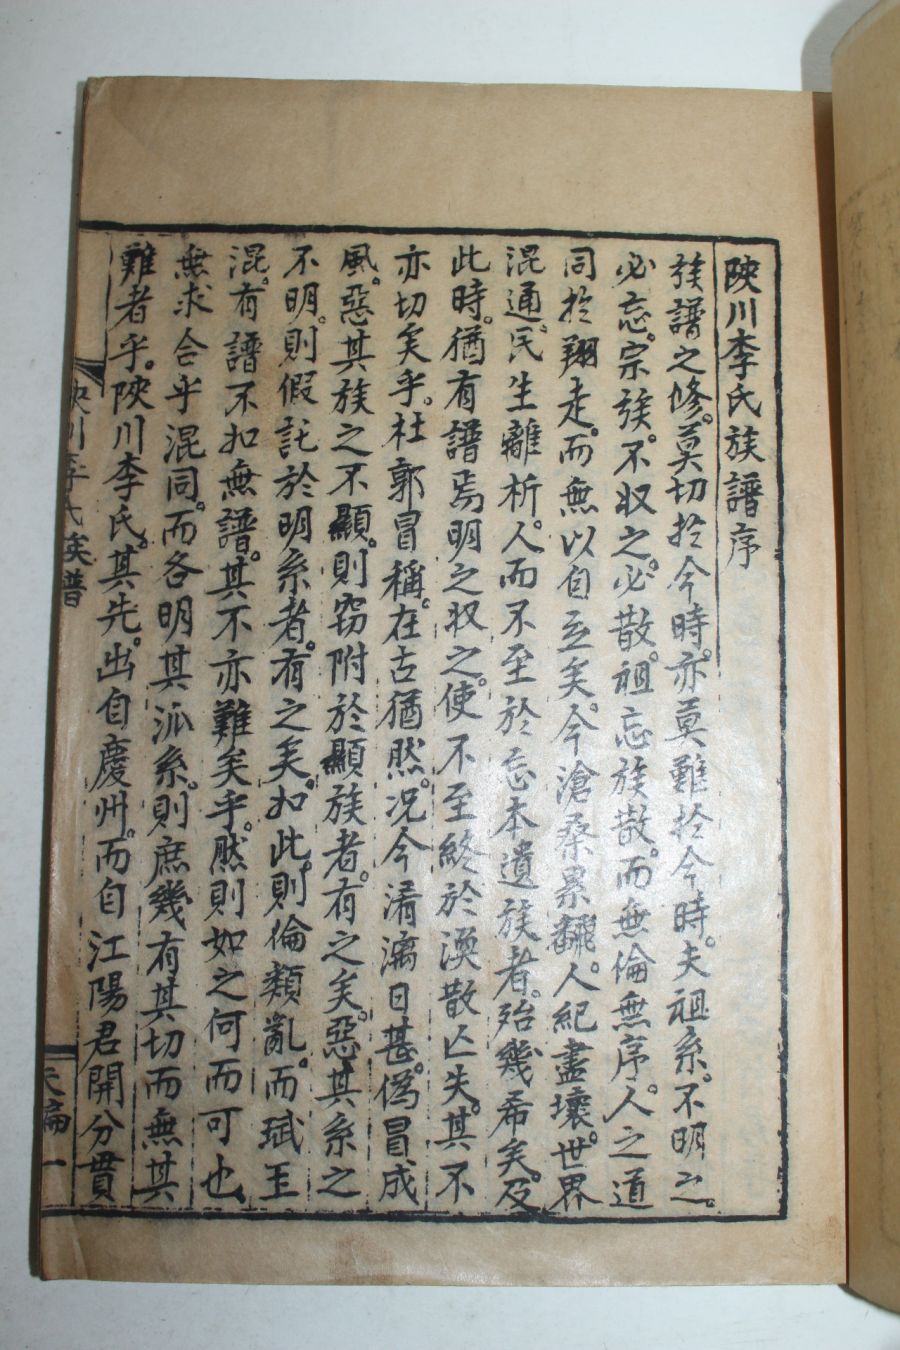 陜川李氏族譜序
族譜之修。莫切於今時。亦莫難於今時。夫祖系。不明之。
必忘。宗族。不収之。必散。祖忘族散。而無倫無序。人之道
同於翔走。而無以自立矣。今滄桑累飜。人紀盡壞。世界
混通。民生離析。人而不至於忘本遺族者。殆幾希矣。及
此時。猶有譜焉明之収之。使不至終於渙散亾失。其不
亦切矣乎。杜郭冒稱。在古猶然。况今淆漓日甚。僞冒成
風。惡其族之不顯。則窃附於顯族者。有之矣。惡其系之
不明。則假託於明系者。有之矣。如此。則倫類亂。而珷玉
混。有譜不如無譜。其不亦難矣乎。然則如之何而可也
無求合乎混同。而各明其派系。則庶幾有其切而無其
難者乎。陜川李氏。其先。出自慶州。而自江陽君開分貫
陜川李氏族譜
天編
一